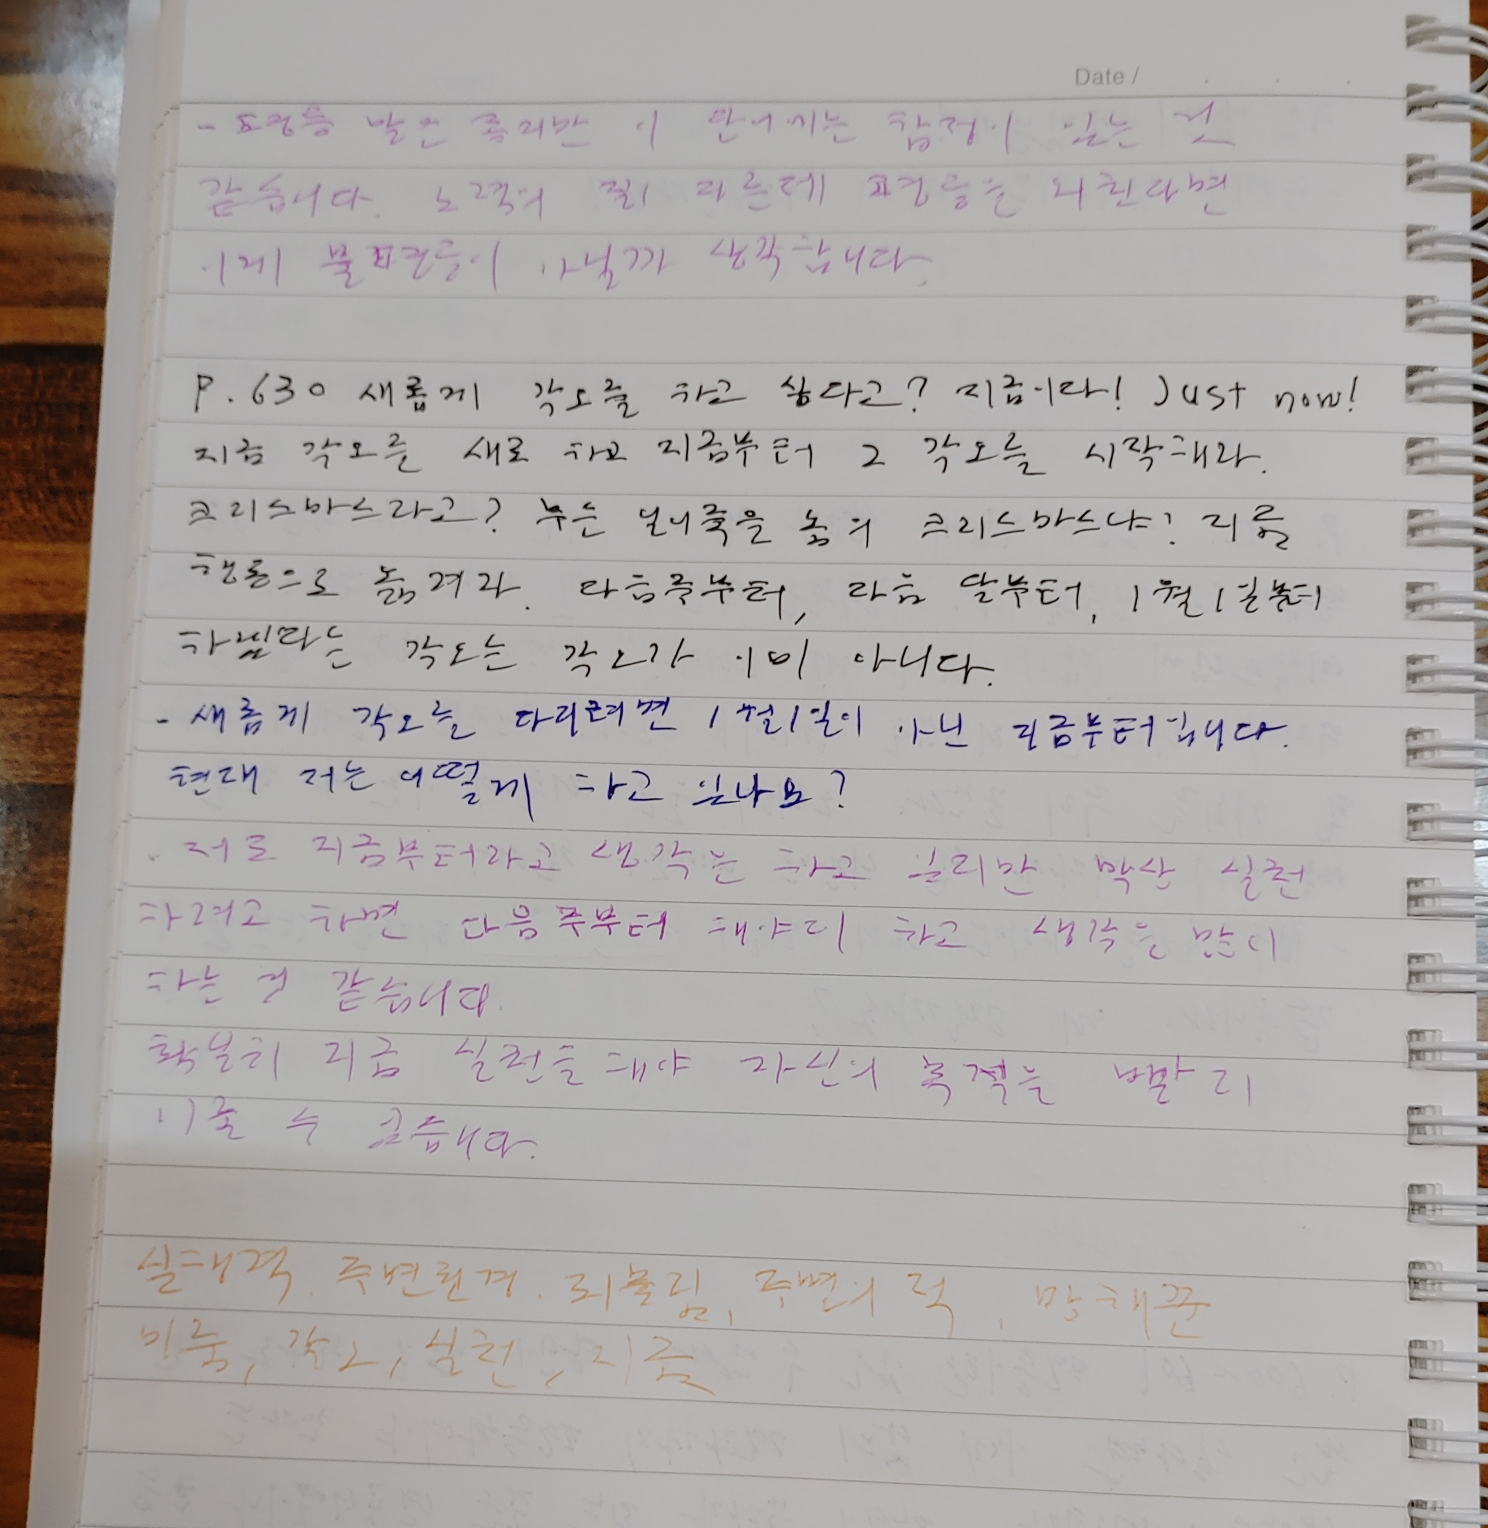 Date /
- 평등은 말은 좋지만 이 단어에는 함정이 있는 것
같습니다. 노력의 질이 다른데 평등을 외친다면
이게 불평등이 아닐까 생각합니다.
P.630 새롭게 각오를 하고 싶다고? 지금이다! Just now!
지금 각오를 새로 하고 지금부터 그 각오를 시작해라.
크리스마스라고? 무슨 얼어죽을 놈의 크리스마스냐? 지금
행동으로 옮겨라. 다음주부터, 다음 달부터, 1월1일부터
하겠다는 각오는 각오가 이미 아니다.
- 새롭게 각오를 다지려면 1월1일이 아닌 지금부터입니다.
현재 저는 어떻게 하고 있나요?
. 저도 지금부터라고 생각은 하고 있지만 막상 실천
하려고 하면 다음주부터 해야지 하고 생각을 많이
하는 것 같습니다.
확실히 지금 실천을 해야 자신의 목적을 빨리
이룰 수 있습니다.
실패격, 주변환경, 휘둘림, 주변의 적, 방해꾼
미룸, 각오, 실천, 지금